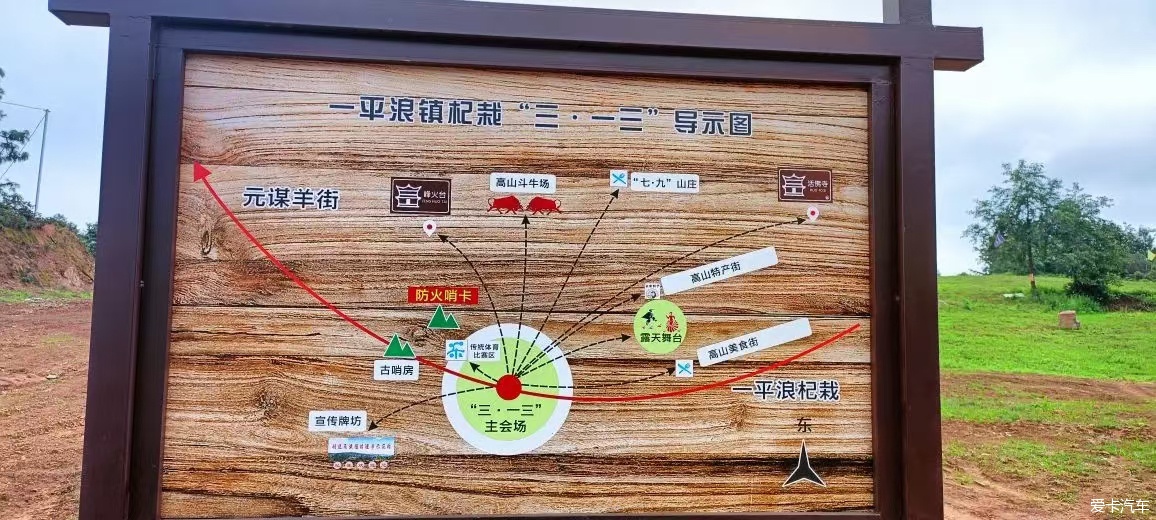 一平浪镇杞栽“三·一三”导示图
元谋羊街
峰火台
FENG HUO TAI
高山斗牛场
“七·九”山庄
活佛寺
HUO FO SI
高山特产街
防火哨卡
露天舞台
传统体育
比赛区
古哨房
高山美食街
一平浪杞栽
“三·一三”
主会场
宣传牌坊
东
爱卡汽车